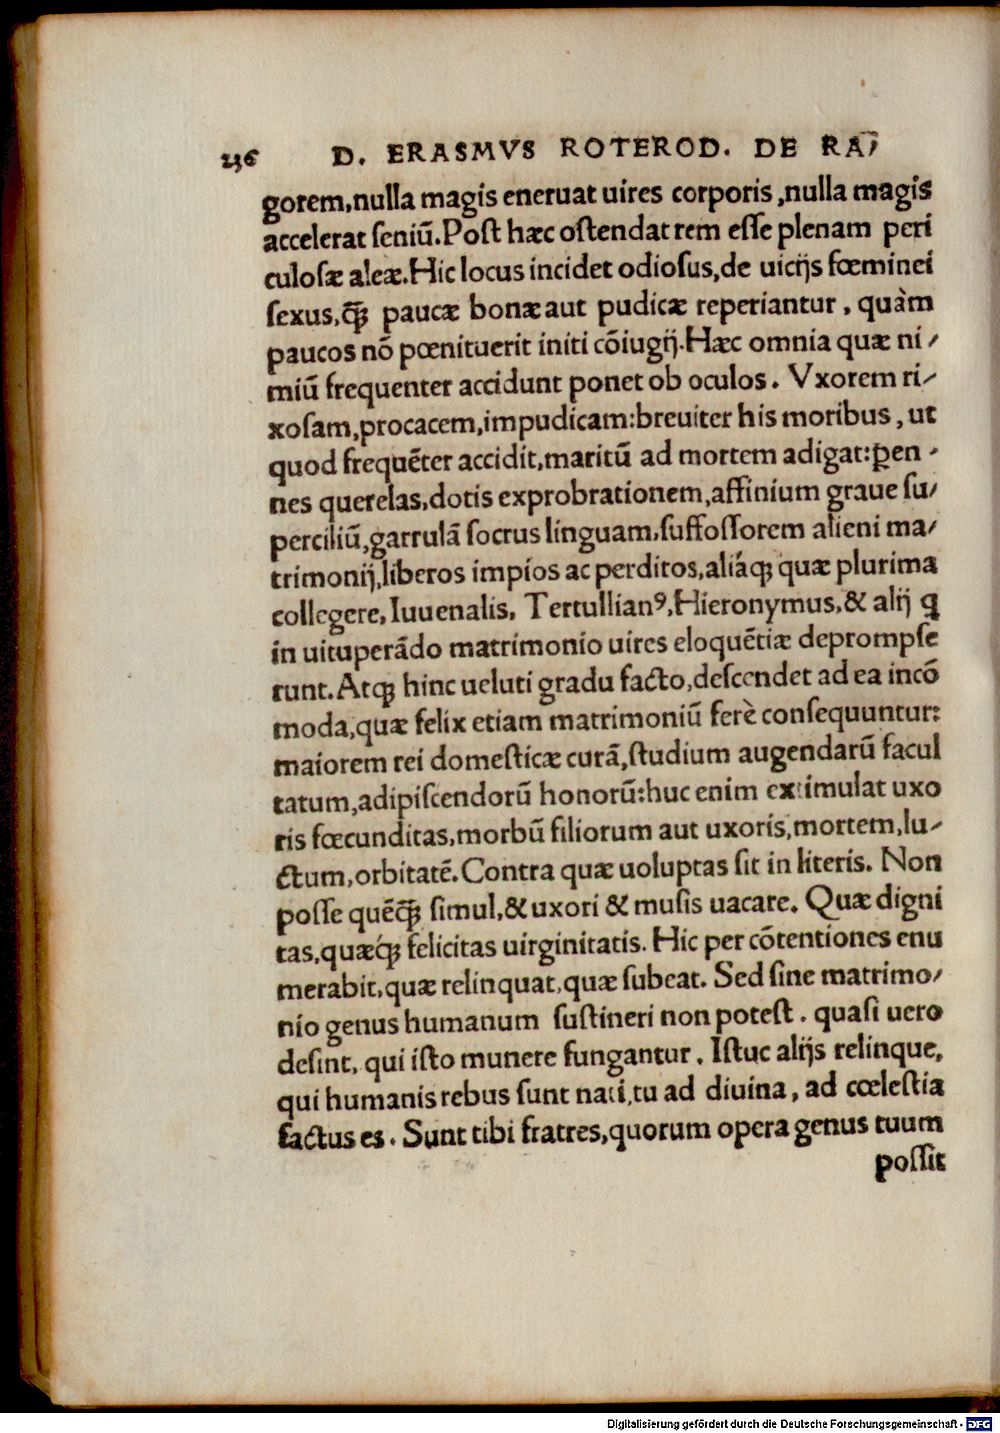 236 D. ERASMVS ROTEROD. DE RA/
gorem,nulla magis eneruat uires corporis,nulla magis
accelerat seniũ.Post hæc ostendat rem esse plenam peri
culosæ aleæ.Hic locus incidet odiosus,de uicijs fœminei
sexus,ꝗ̃ꝫ paucæ bonæ aut pudicæ reperiantur, quàm
paucos nõ pœnituerit initi cõiugij.Hæc omnia quæ ni/
miũ frequenter accidunt ponet ob oculos. Vxorem ri/
xosam,procacem,impudicam:breuiter his moribus, ut
quod frequẽter accidit,maritũ ad mortem adigat:ꝑen/
nes querelas,dotis exprobrationem,affinium graue su/
perciliũ,garrulã socrus linguam,suffossorem alieni ma/
trimonij,liberos impios ac perditos,aliáqꝫ quæ plurima
collegere,Iuuenalis, Tertullianꝰ,Hieronymus,& alij q̃
in uituperãdo matrimonio uires eloquẽtiæ deprompse
runt.Atqꝫ hinc ueluti gradu facto,descendet ad ea incõ
moda,quæ felix etiam matrimoniũ ferè consequuntur:
maiorem rei domesticæ curã,studium augendarũ facul
tatum,adipiscendorũ honorũ:huc enim extimulat uxo
ris fœcunditas,morbũ filiorum aut uxoris,mortem,lu/
ctum,orbitatẽ.Contra quæ uoluptas sit in literis. Non
posse quẽꝗ̃ꝫ simul,& uxori & musis uacare. Quæ digni
tas,quæqꝫ́ felicitas uirginitatis. Hic per cõtentiones enu
merabit,quæ relinquat,quæ subeat. Sed sine matrimo/
nio genus humanum sustineri non potest. quasi uero
desint, qui isto munere fungantur. Istuc alijs relinque,
qui humanis rebus sunt nati,tu ad diuina, ad cœlestia
factus es. Sunt tibi fratres,quorum opera genus tuum
possit
Digitalisierung gefördert durch die Deutsche Forschungsgemeinschaft - DFG